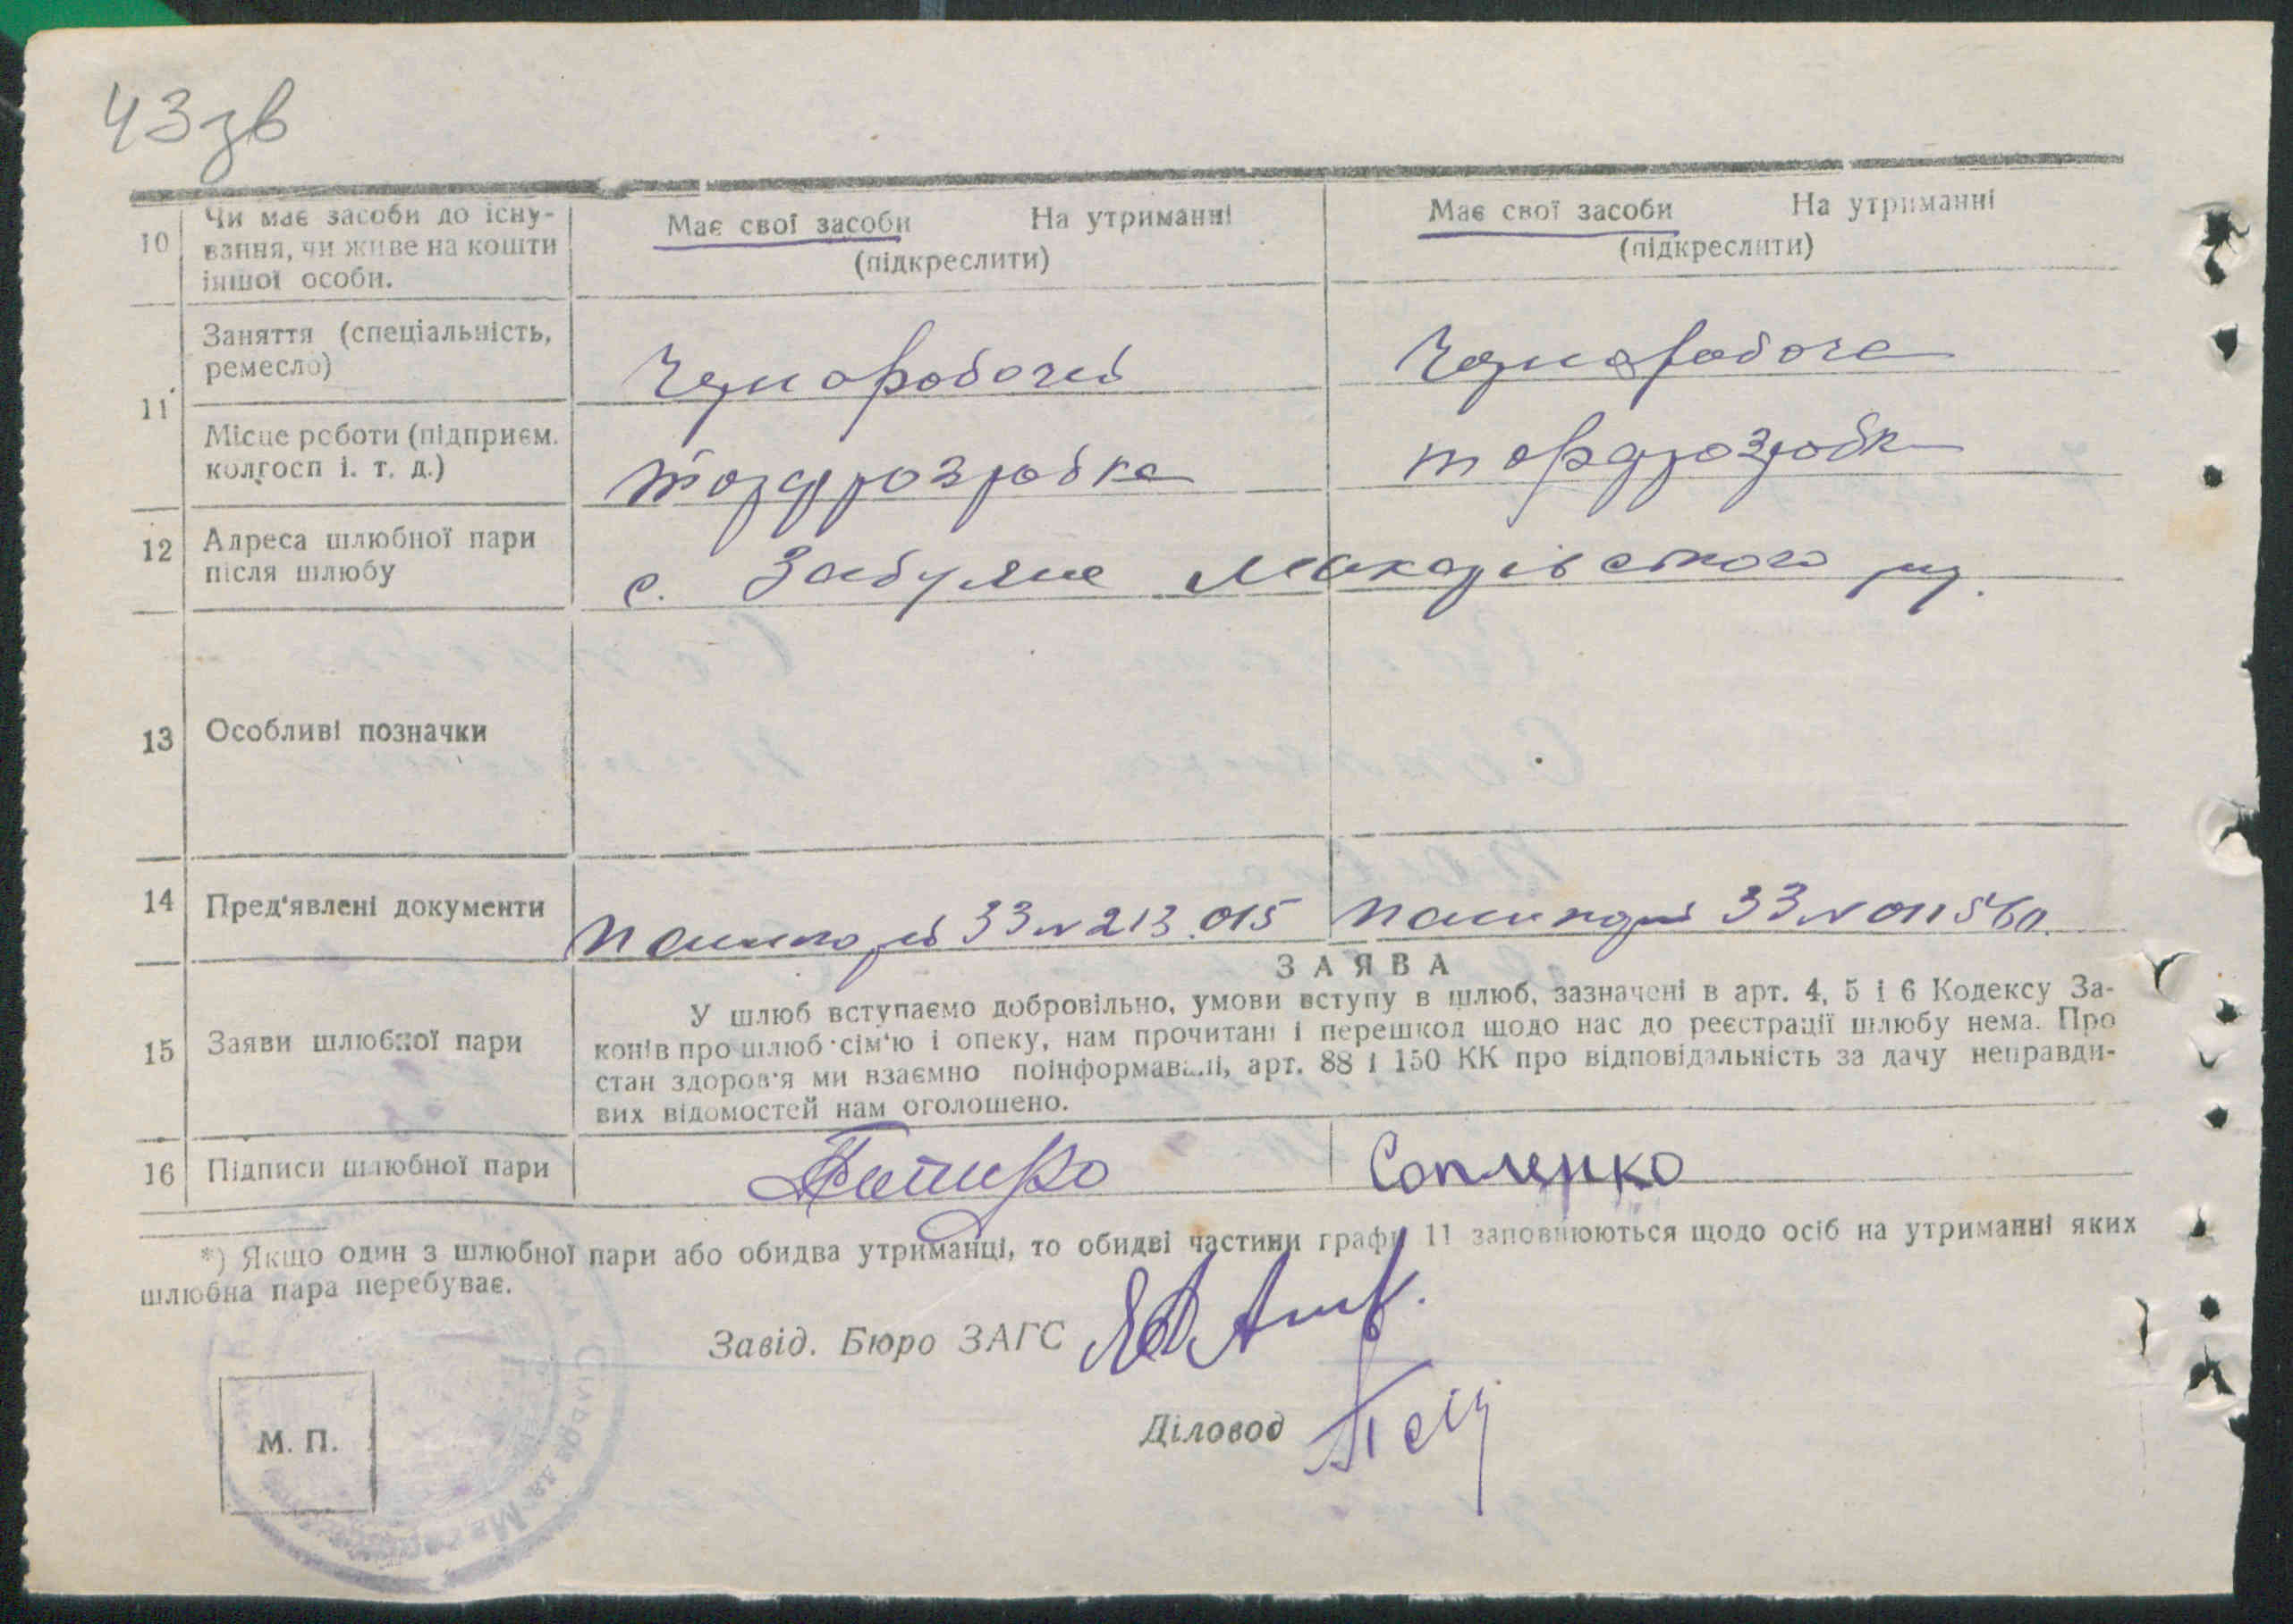 43зв
10 Чи має засоби до існу-
вання, чи живе на кошти
іншої особи.
Має свої засоби На утриманні
(підкреслити)
Має свої засоби На утриманні
(підкреслити)
11 Заняття (спеціальність,
ремесло)
Чернорабочий
Чернорабоча
Місце роботи (підприєм.
колгосп і. т. д.)
торфрозробка
торфрозробк
12 Адреса шлюбної пари
після шлюбу
с. Забуяне Макарівського р.
13 Особливі позначки
14 Пред'явлені документи
Пашпорт 33 № 213.015
Пашпорт 33 №
15 Заяви шлюбної пари
ЗАЯВА
У шлюб вступаємо добровільно, умови вступу в шлюб, зазначені в арт. 4, 5 і 6 Кодексу За-
конів про шлюб сім'ю і опеку, нам прочитані і перешкод щодо нас до реєстрації шлюбу нема. Про
стан здоров'я ми взаємно поінформавалі, арт. 88 і 150 КК про відповідальність за дачу неправди-
вих відомостей нам оголошено.
16 Підписи шлюбної пари
Сопленко
*) Якщо один з шлюбної пари або обидва утриманці, то обидві частини графи 11 заповнюються щодо осіб на утриманні яких
шлюбна пара перебуває.
Завід. Бюро ЗАГС
Діловод
М. П.